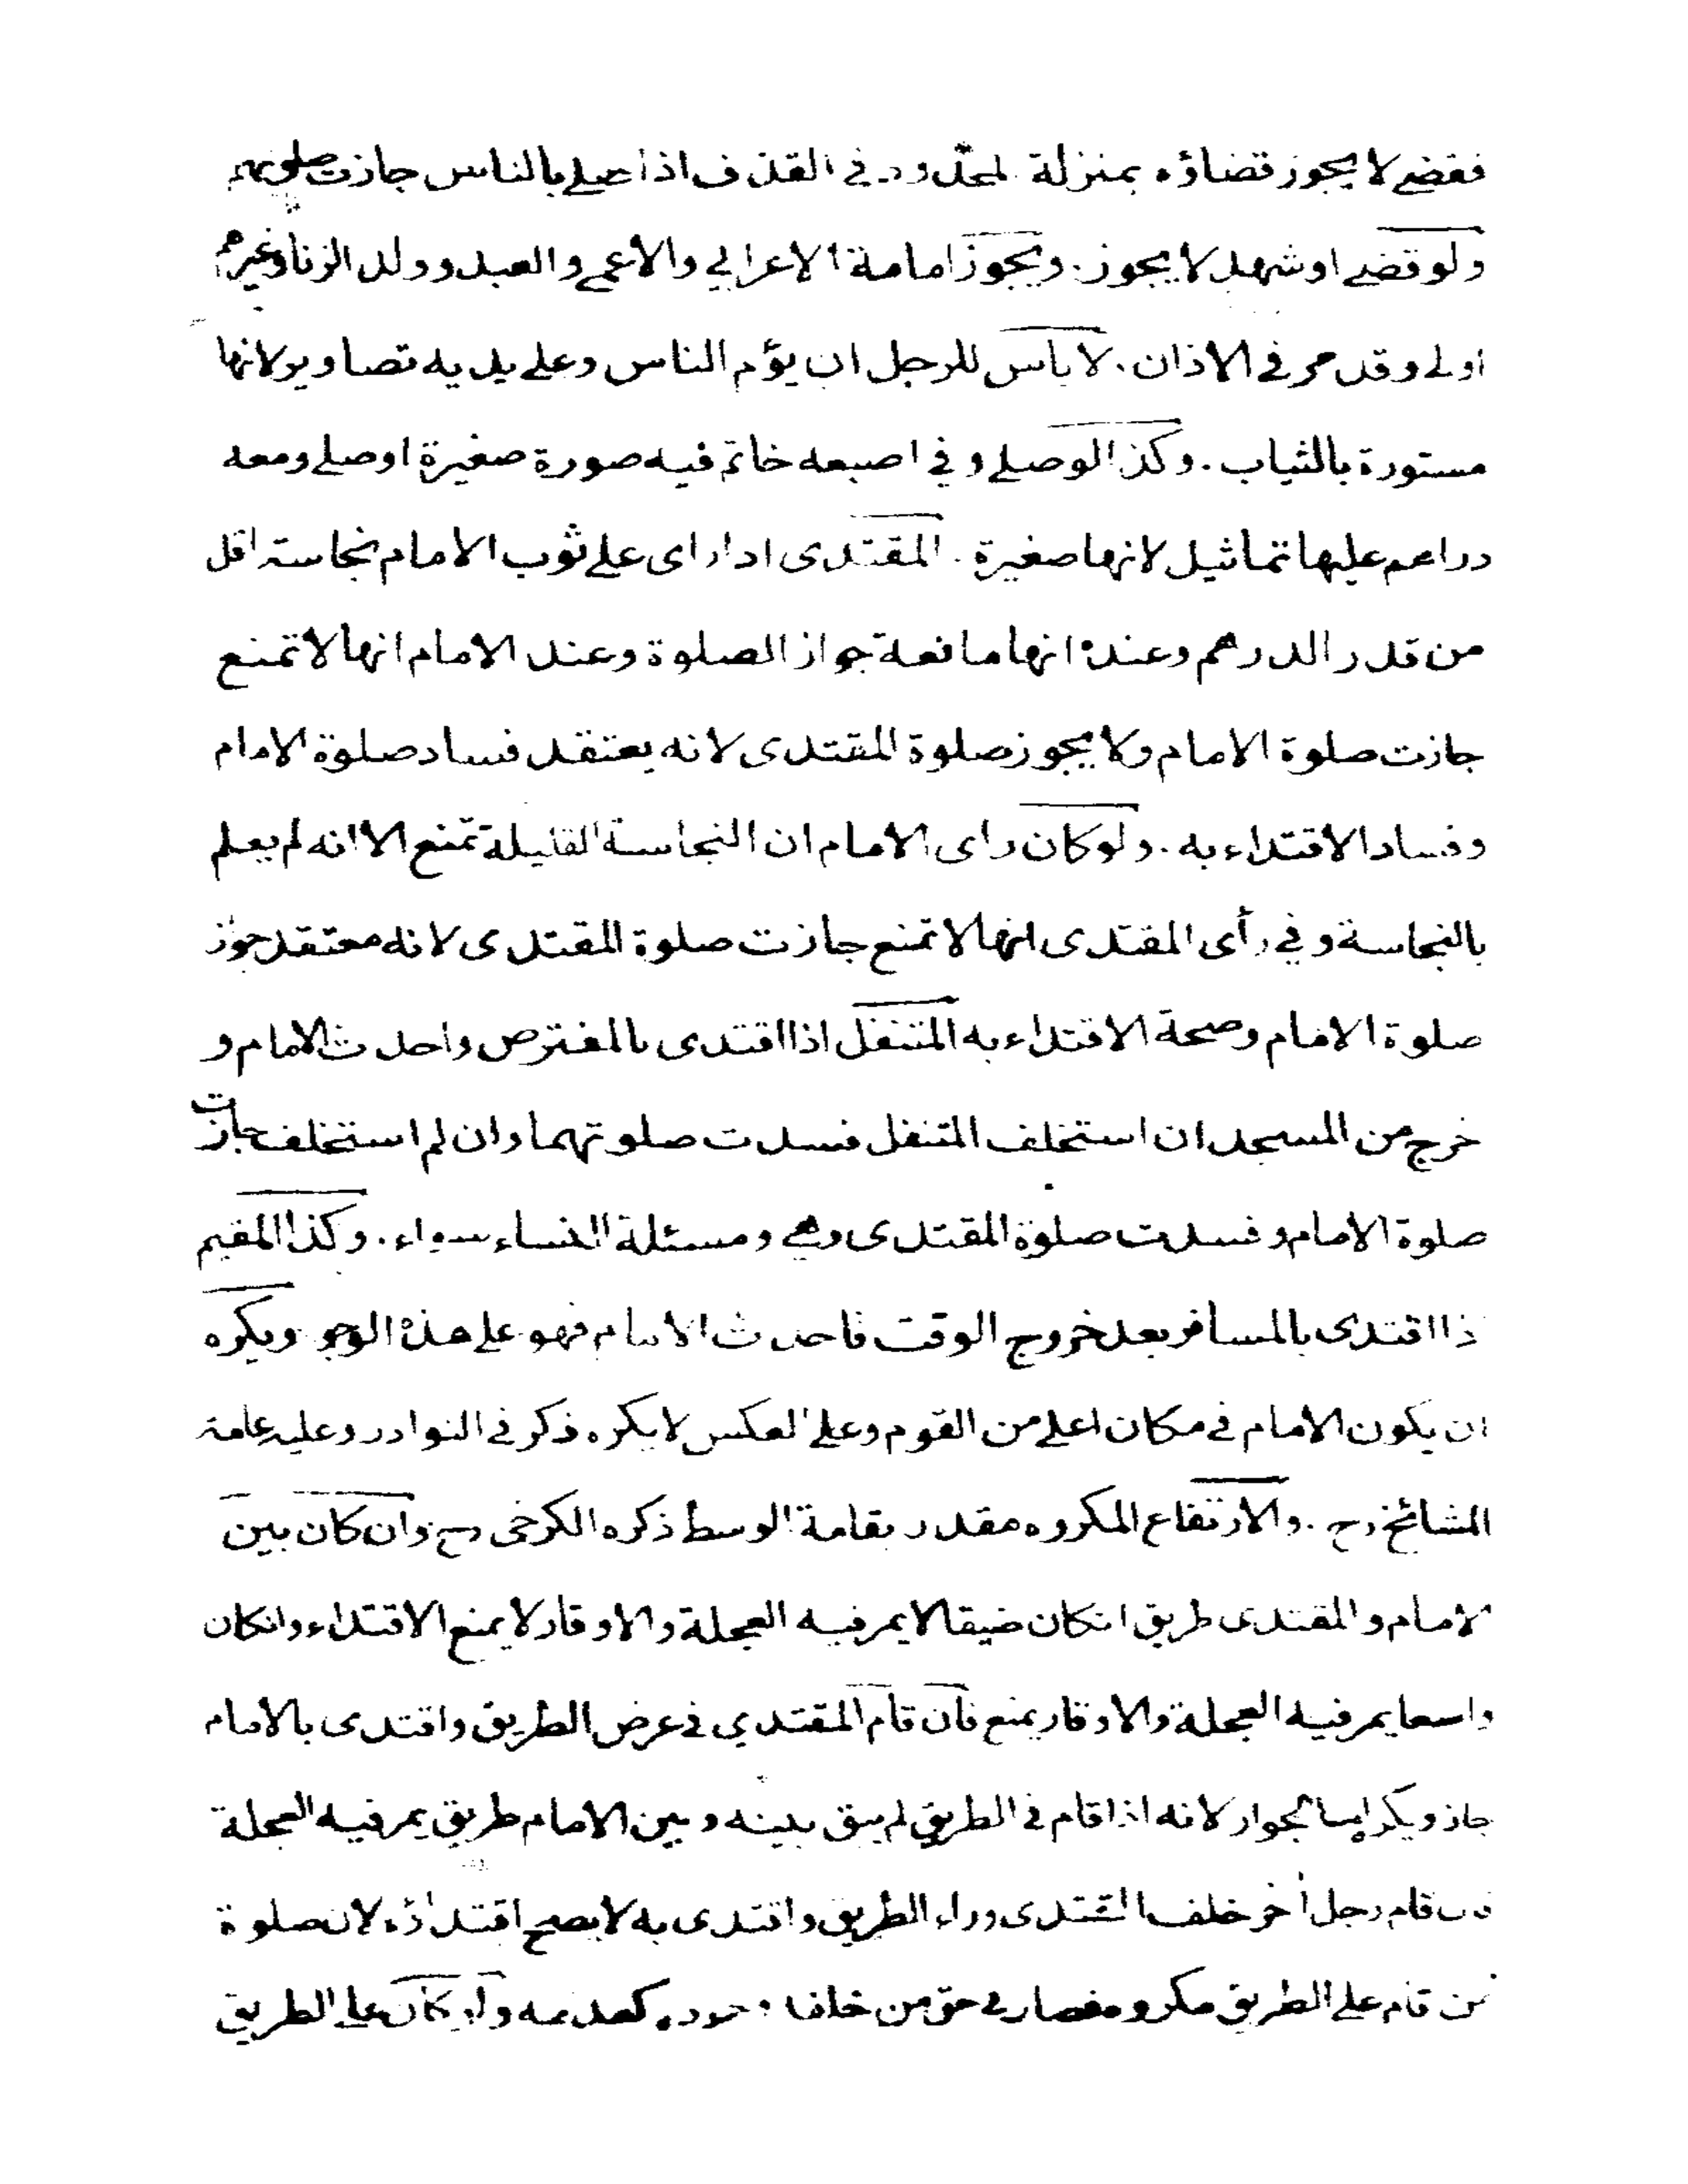 فقضے لا يجوز قضاؤه بمنزلة المحدود في القذف اذا صلے بالناس جازت صلوته
ولو قضے او شهد لا يجوز. ويجوز امامة الاعرابي والاعمے والعبد وولد الزنا وغيرهم
اولے وقد مر فے الاذان. لا باس للرجل ان يؤم الناس وعلے يديه تصاوير لانها
مستورة بالثياب. وكذا لو صلے وفي اصبعه خاتم فيه صورة صغيرة او صلے ومعه
دراهم عليها تماثيل لانها صغيرة. المقتدى اذا راى علے ثوب الامام نجاسة اقل
من قدر الدرهم وعنده انها مانعة جواز الصلوة وعند الامام انها لا تمنع
جازت صلوة الامام ولا يجوز صلوة المقتدى لانه يعتقد فساد صلوة الامام
وفساد الاقتداء به. ولو كان راى الامام ان النجاسة القليلة تمنع الا انه لم يعلم
بالنجاسة وفي رأى المقتدى انها لا تمنع جازت صلوة المقتدى لانه معتقد جواز
صلوة الامام وصحة الاقتداء به المتنفل اذا اقتدى بالمفترض واحدث الامام و
خرج من المسجد ان استخلف المتنفل فسدت صلوتهما وان لم استخلف جازت
صلوة الامام وفسدت صلوة المقتدى وهے ومسئلة النساء سواء. وكذا المقيم
اذا اقتدى بالمسافر بعد خروج الوقت فاحدث الامام فهو علے هذه الوجوه ويكره
ان يكون الامام فے مكان اعلے من القوم وعلے العكس لا يكره ذكر فے النوادر وعليه عامة
المشائخ رح. والارتفاع المكروه مقدر بقامة الوسط ذكره الكرخى رح وان كان بين
الامام والمقتدى طريق انكان ضيقا لا يمر فيه العجلة والاوقار لا يمنع الاقتداء وانكان
واسعا يمر فيه العجلة والاوقار يمنع فان قام المقتدي في عرض الطريق واقتدى بالامام
جاز ويكره لانه اذا قام في الطريق لم يبق بينه وبين الامام طريق يمر فيه العجلة
فان قام رجل أخر خلف المقتدى وراء الطريق واقتدى به لا يصح اقتداؤه لان صلوة
من قام علے الطريق مكروه فصار في حق من خلفه وجوده كعدمه ولو كان علے الطريق